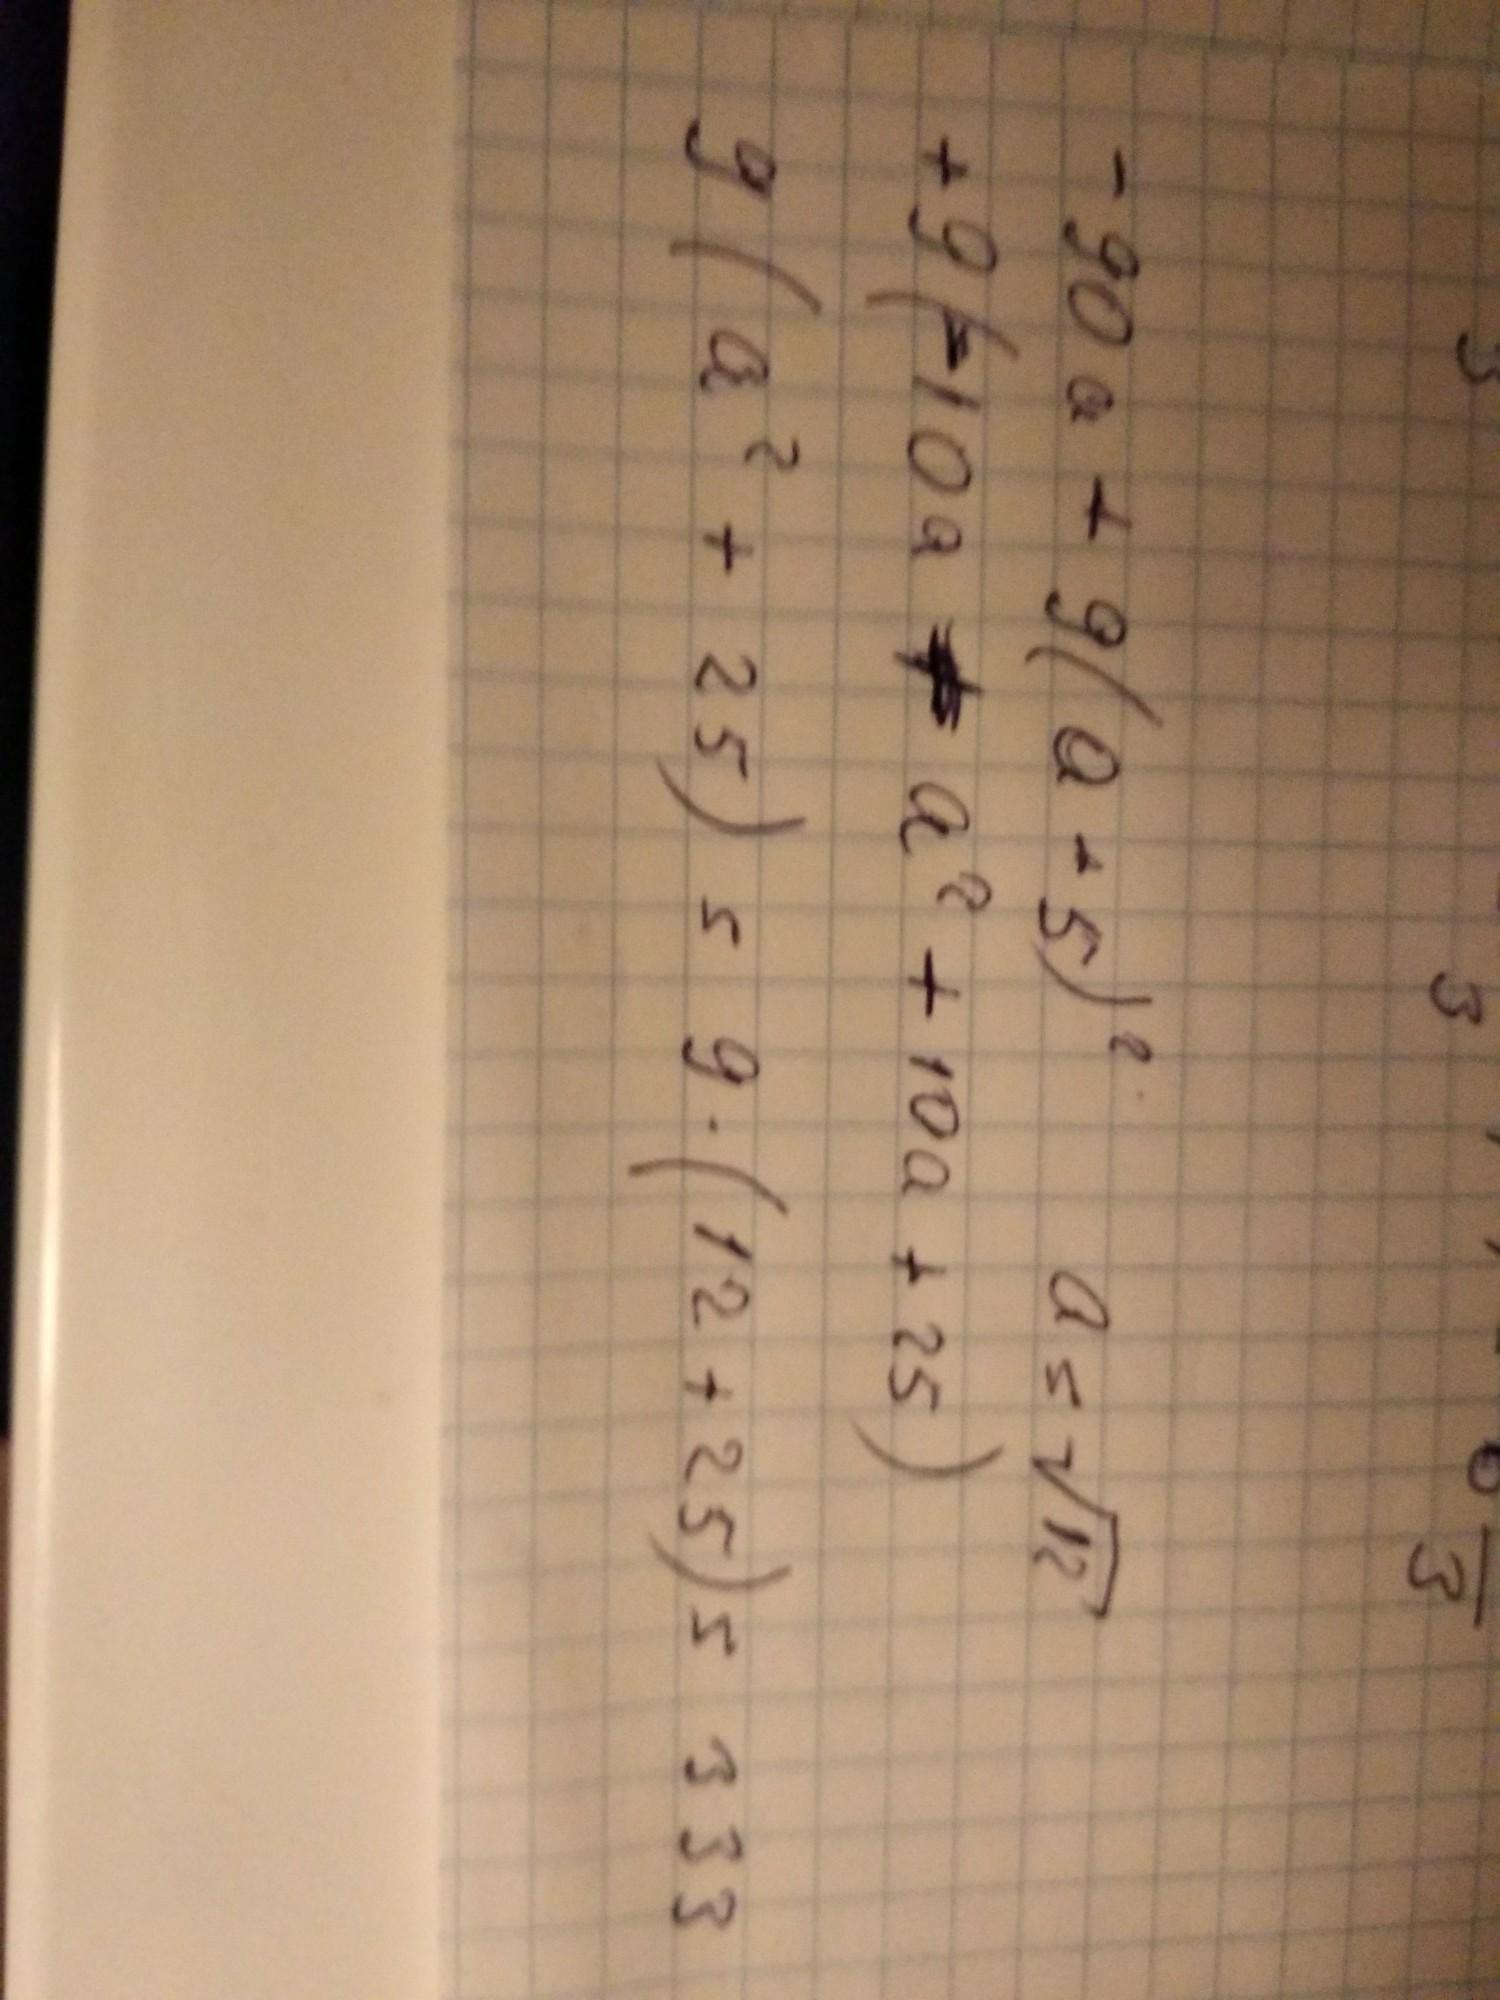 -90a + 9(a+5)²     a = √12
+9(-10a + a² + 10a + 25)
9(a² + 25) = 9·(12+25) = 333